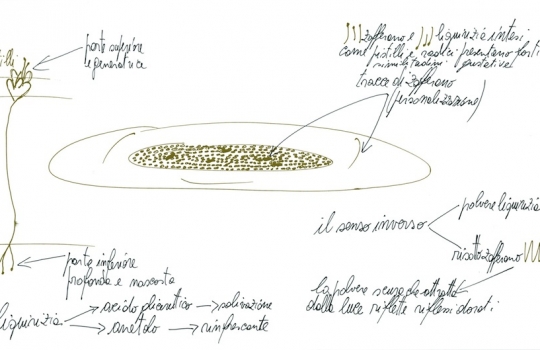 parte superiore
generatrice
zafferano e liquirizia intesi
come pistilli e radici presentano forti
similitudini gustative
tracce di zafferano
(personalizzazione)
il senso inverso
polvere liquirizia
risotto zafferano
parte inferiore
profonda e nascosta
la polvere scura da attratta
dalla luce riflette riflessi dorati
liquirizia
acido glicirretico → salivazione
anetolo → rinfrescante